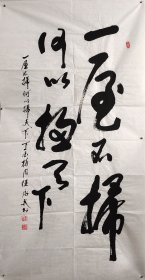 一屋不掃
何以掃天下
一屋不掃何以掃天下